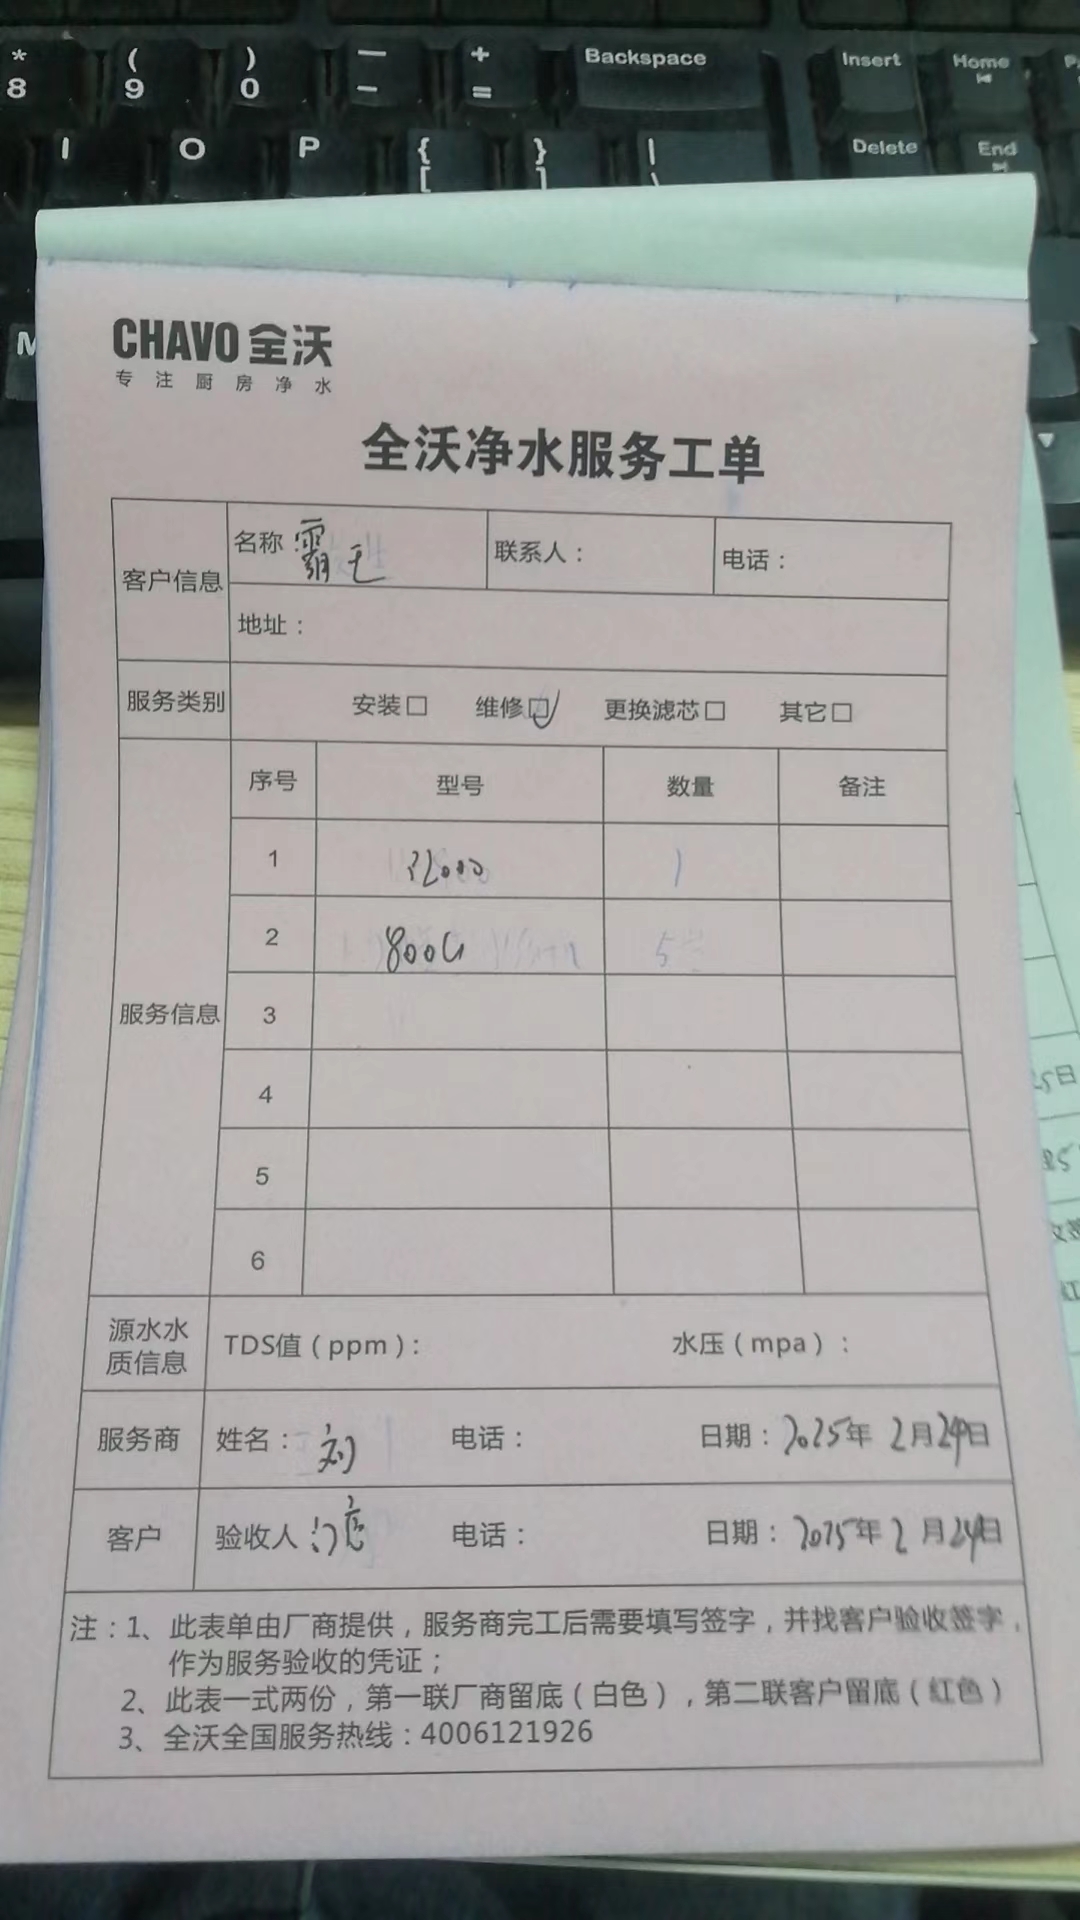 * ( ) — + Backspace Insert Home
8 9 0 - =
I O P { } | Delete End
[ ] \
M
CHAVO 全沃
专注厨房净水
全沃净水服务工单
客户信息 名称：霸王 联系人： 电话：
地址：
服务类别 安装□ 维修☑ 更换滤芯□ 其它□
服务信息 序号 型号 数量 备注
1 1
2 800G 5
3
4
5
6
源水水质信息 TDS值（ppm）： 水压（mpa）：
服务商 姓名：刘 电话： 日期：2025年2月24日
客户 验收人： 电话： 日期：2025年2月24日
注：1、此表单由厂商提供，服务商完工后需要填写签字，并找客户验收签字，
作为服务验收的凭证；
2、此表一式两份，第一联厂商留底（白色），第二联客户留底（红色）
3、全沃全国服务热线：4006121926